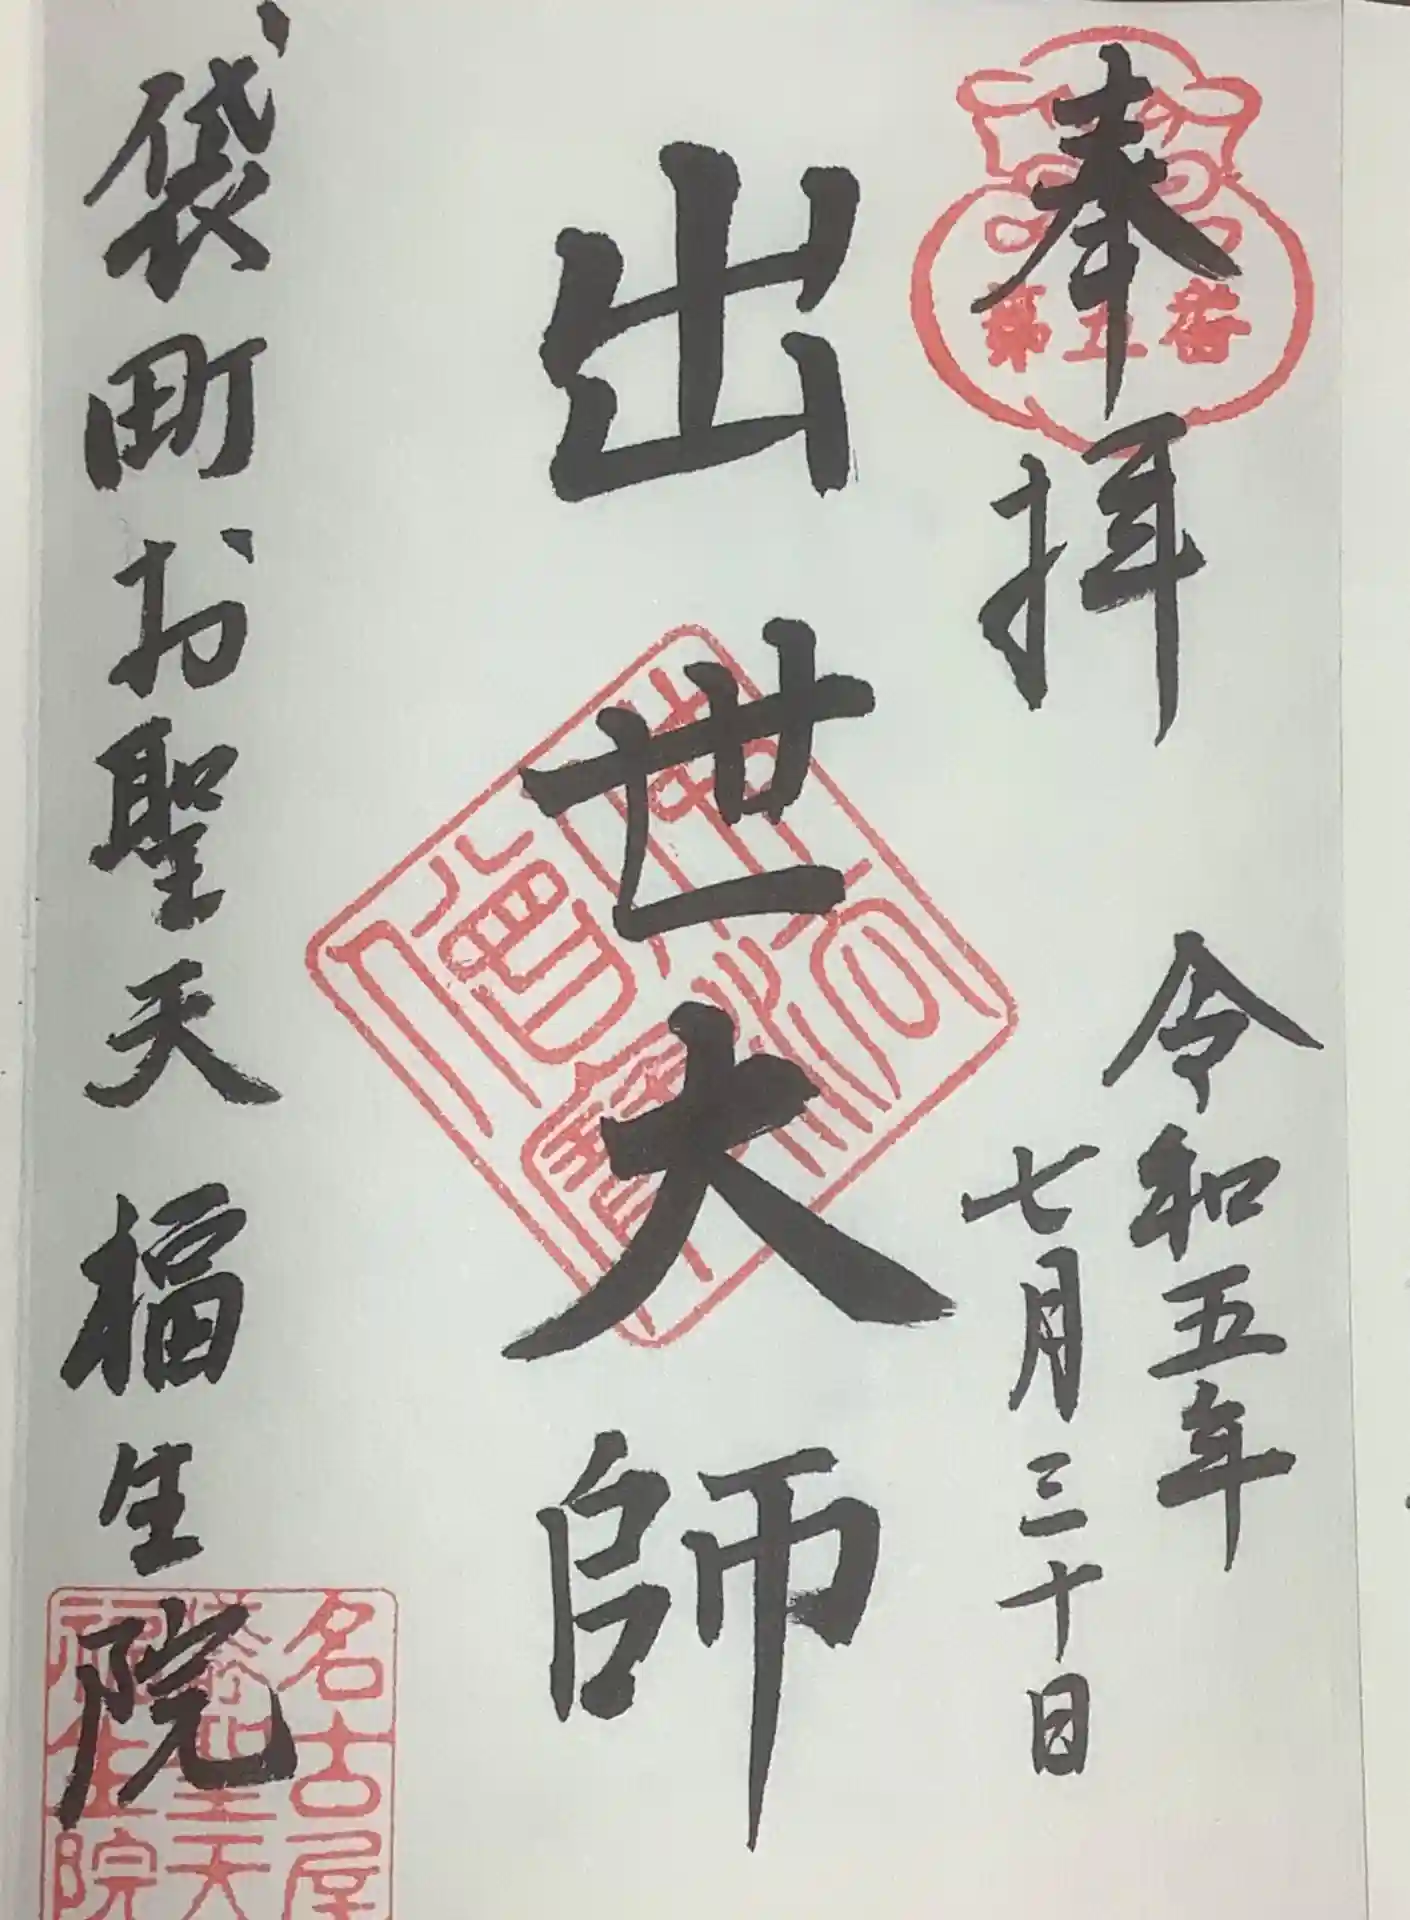 奉拝
第五番
令和五年
七月三十日
出世大師
袋町お聖天 福生院
名古屋
聖天
福生院